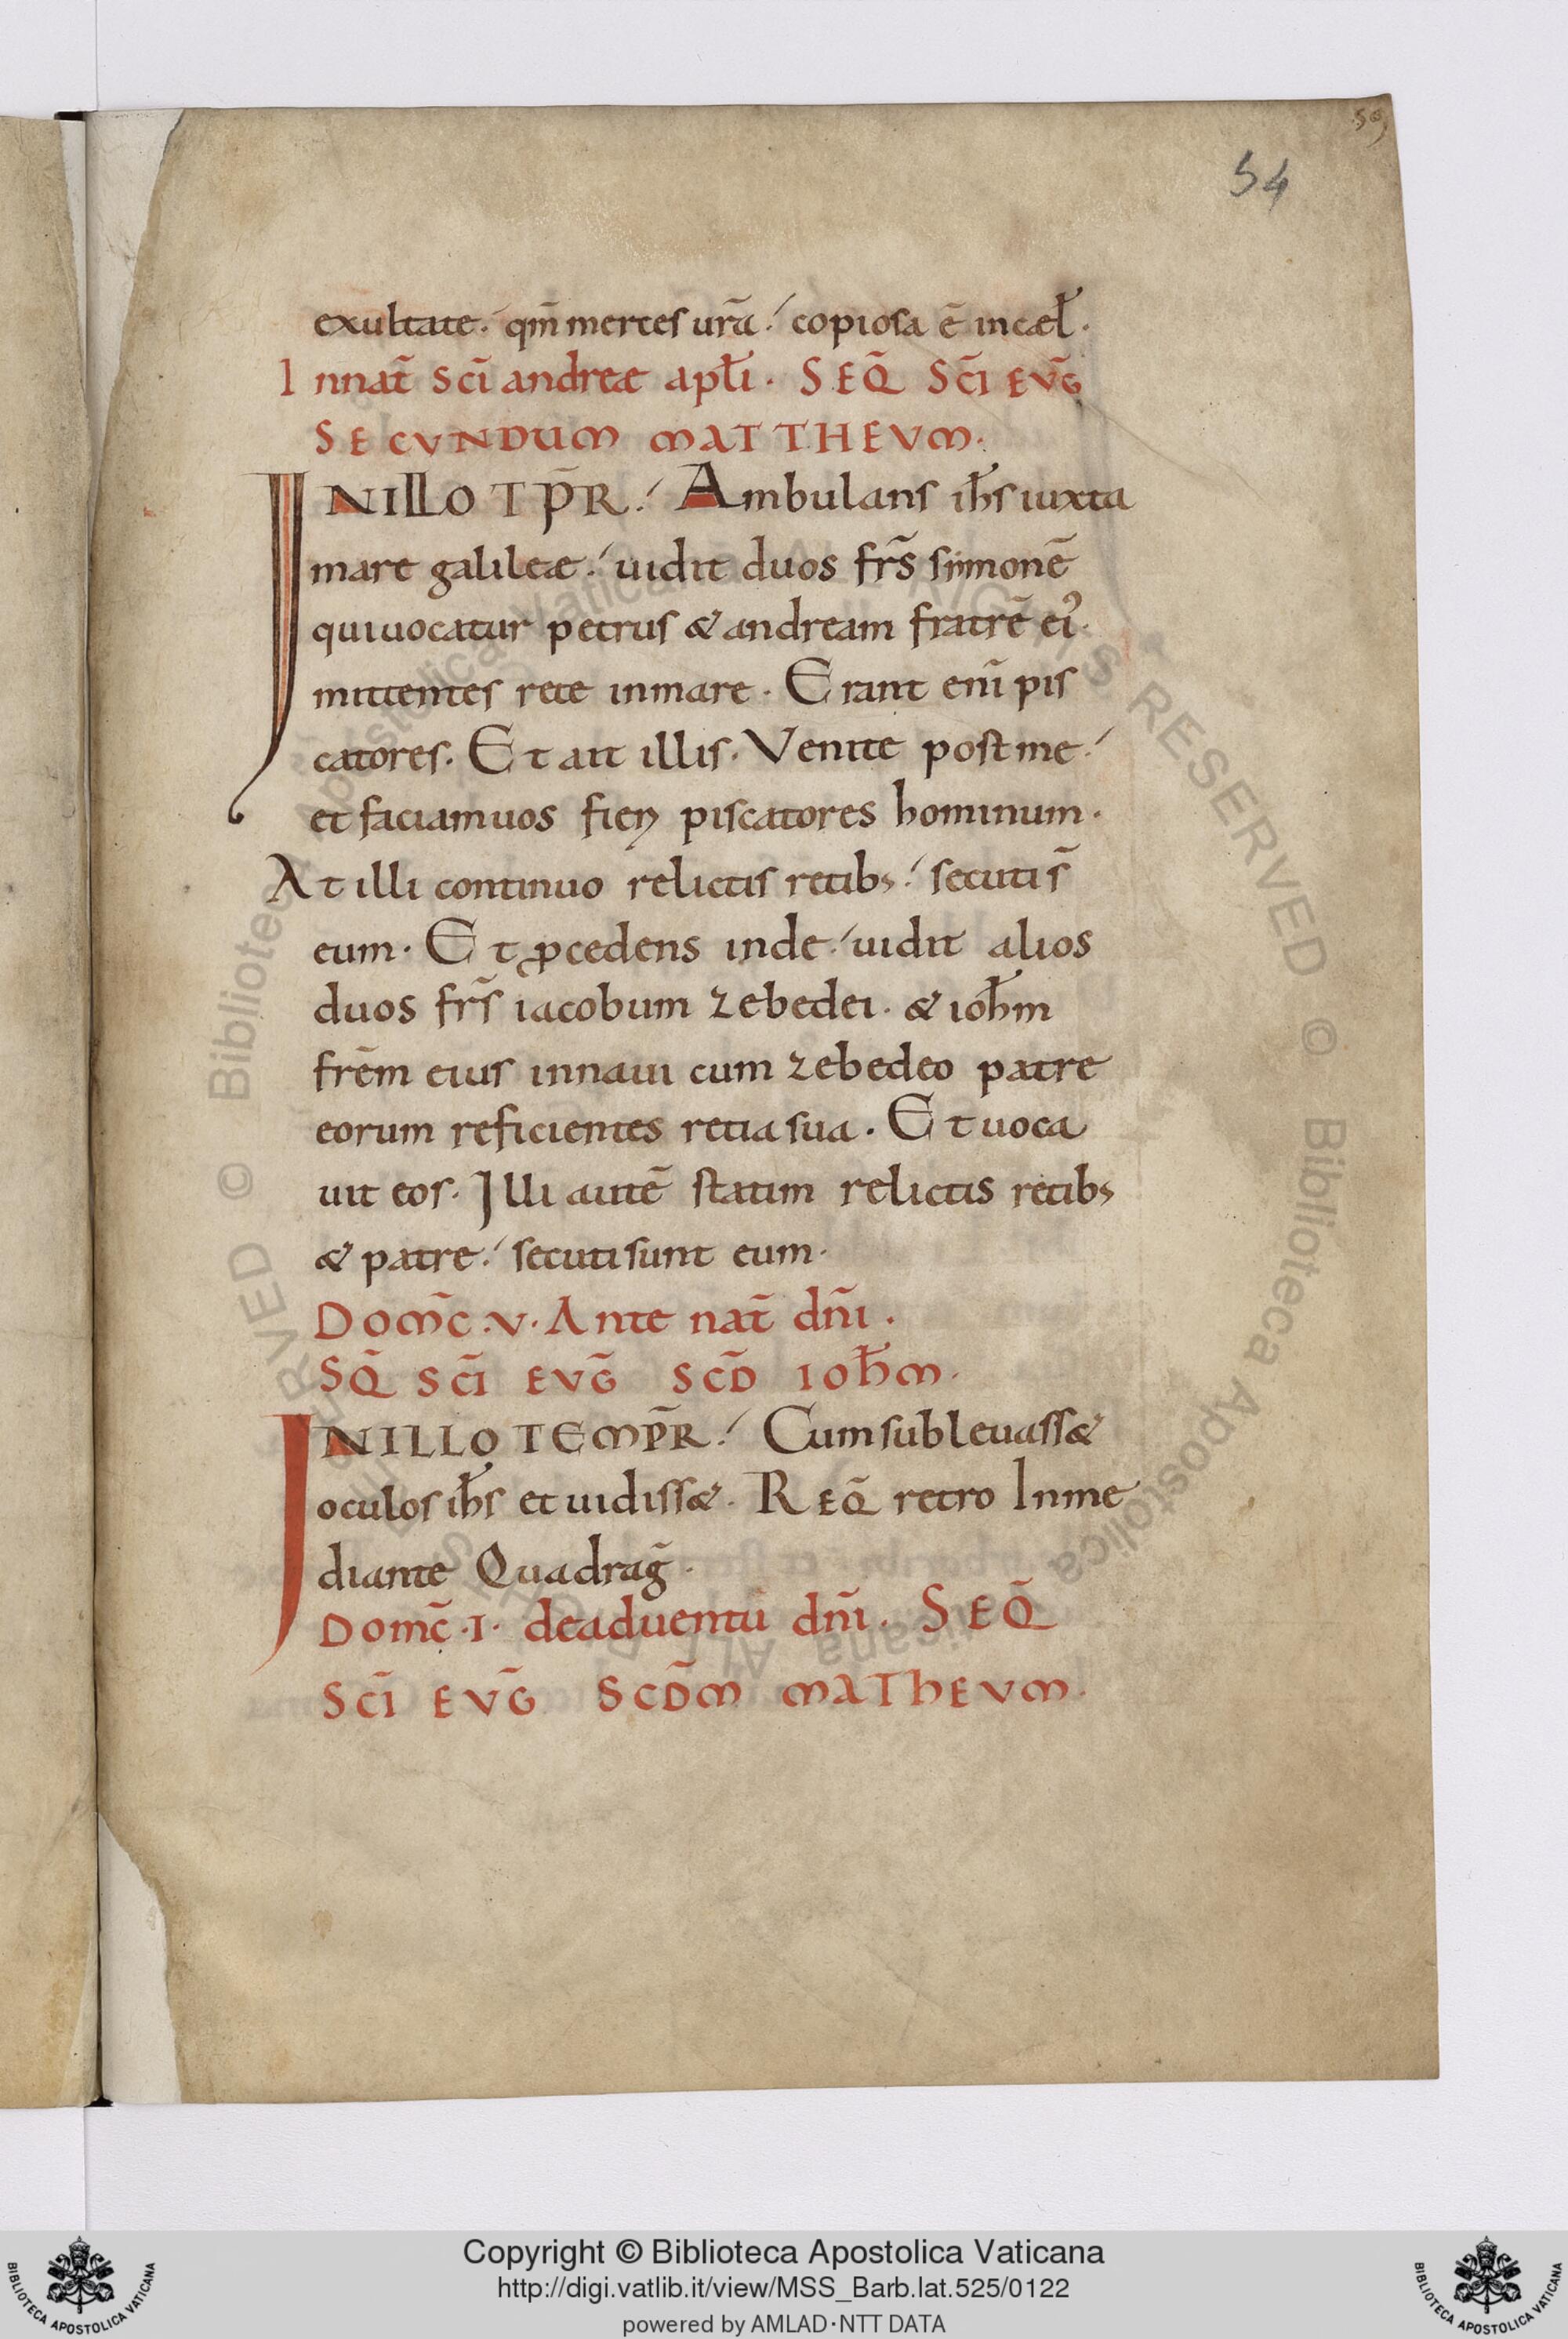 54
exultate. qm̄ merces ur̄a. copiosa ē incæł.
Innat̄ sc̄i andreæ apłi. SEQ̄ SC̄I EVḠ
SECVNDUM MATTHEVM.
INILLO TP̄R. Ambulans ih̄s iuxta
mare galileæ. uidit duos fr̄s simonē
quiuocatur petrus & andream fratrē ei᾽.
mittentes rete inmare. Erant eni̅ pis
catores. Et ait illis. Venite post me.
et faciamuos fieri piscatores hominum.
At illi continuo relictis retib; secutis̄
eum. Et ꝓcedens inde. uidit alios
duos fr̄s iacobum zebedei. & ioh̄m
frēm eius innaui cum zebedeo patre
eorum reficientes retia sua. Et uoca
uit eos. Illi autē statim relictis retib;
& patre. secutisunt eum.
Dom̄c. v. Ante nat̄ dn̄i.
SQ̄ SC̄I EVḠ SCD̄ IOH̄M.
INILLO TEMP̄R. Cum subleuass&
oculos ih̄s et uidiss&. REQ̄ retro Inme
diante Quadraḡ.
Dom̄c. I. deaduentu dn̄i. SEQ̄
SC̄I EVḠ SCD̄M MATHEVM.
© Biblioteca Apostolica Vaticana ALL RIGHTS RESERVED © Biblioteca Apostolica Vaticana ALL RIGHTS RESERVED
BIBLIOTECA APOSTOLICA VATICANA
Copyright © Biblioteca Apostolica Vaticana
http://digi.vatlib.it/view/MSS_Barb.lat.525/0122
powered by AMLAD·NTT DATA
BIBLIOTECA APOSTOLICA VATICANA